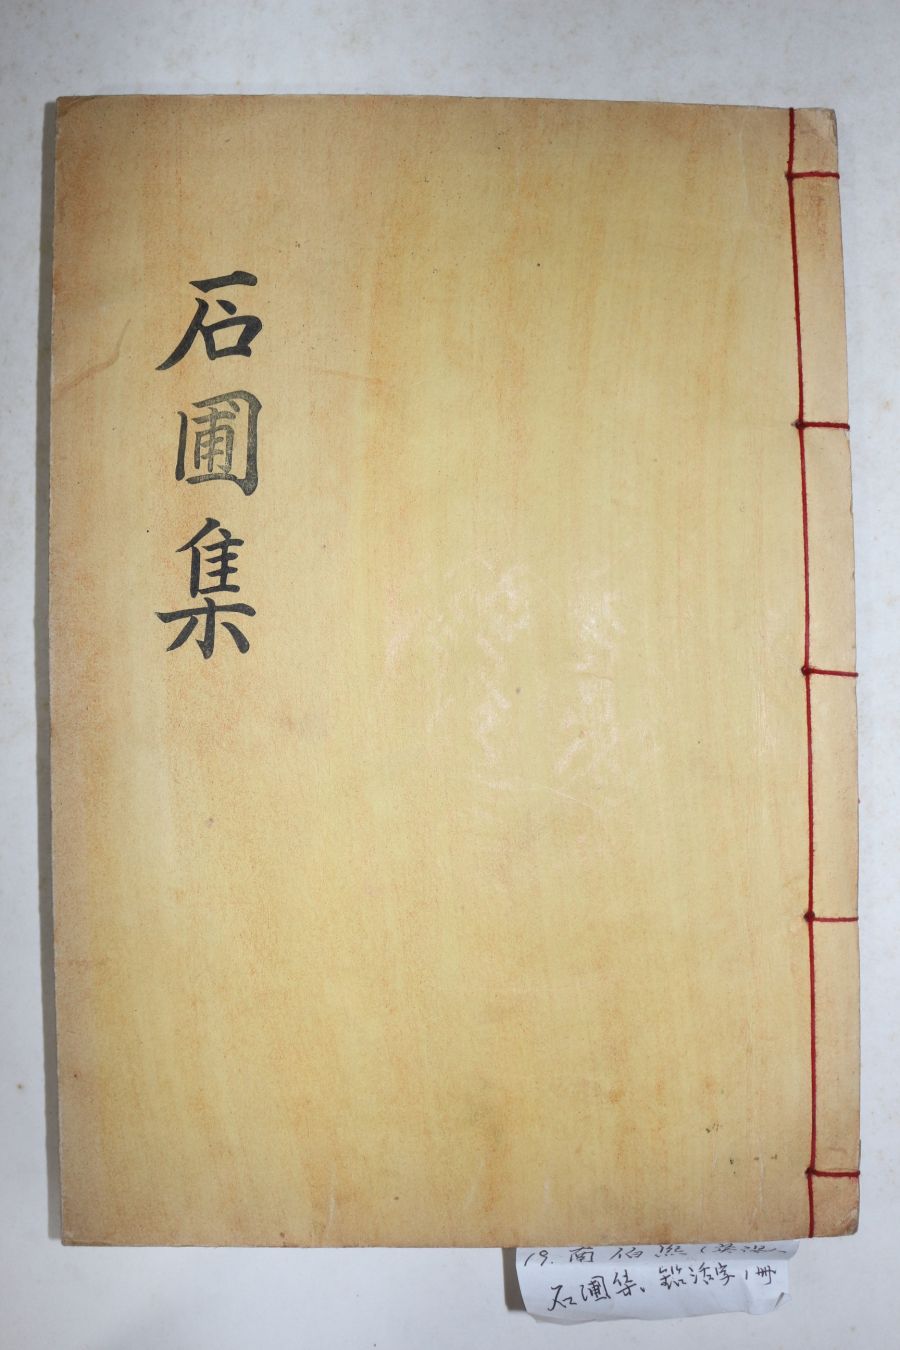 石圃集
19. 南伯熙(英
石圃集、鉛活字 1冊